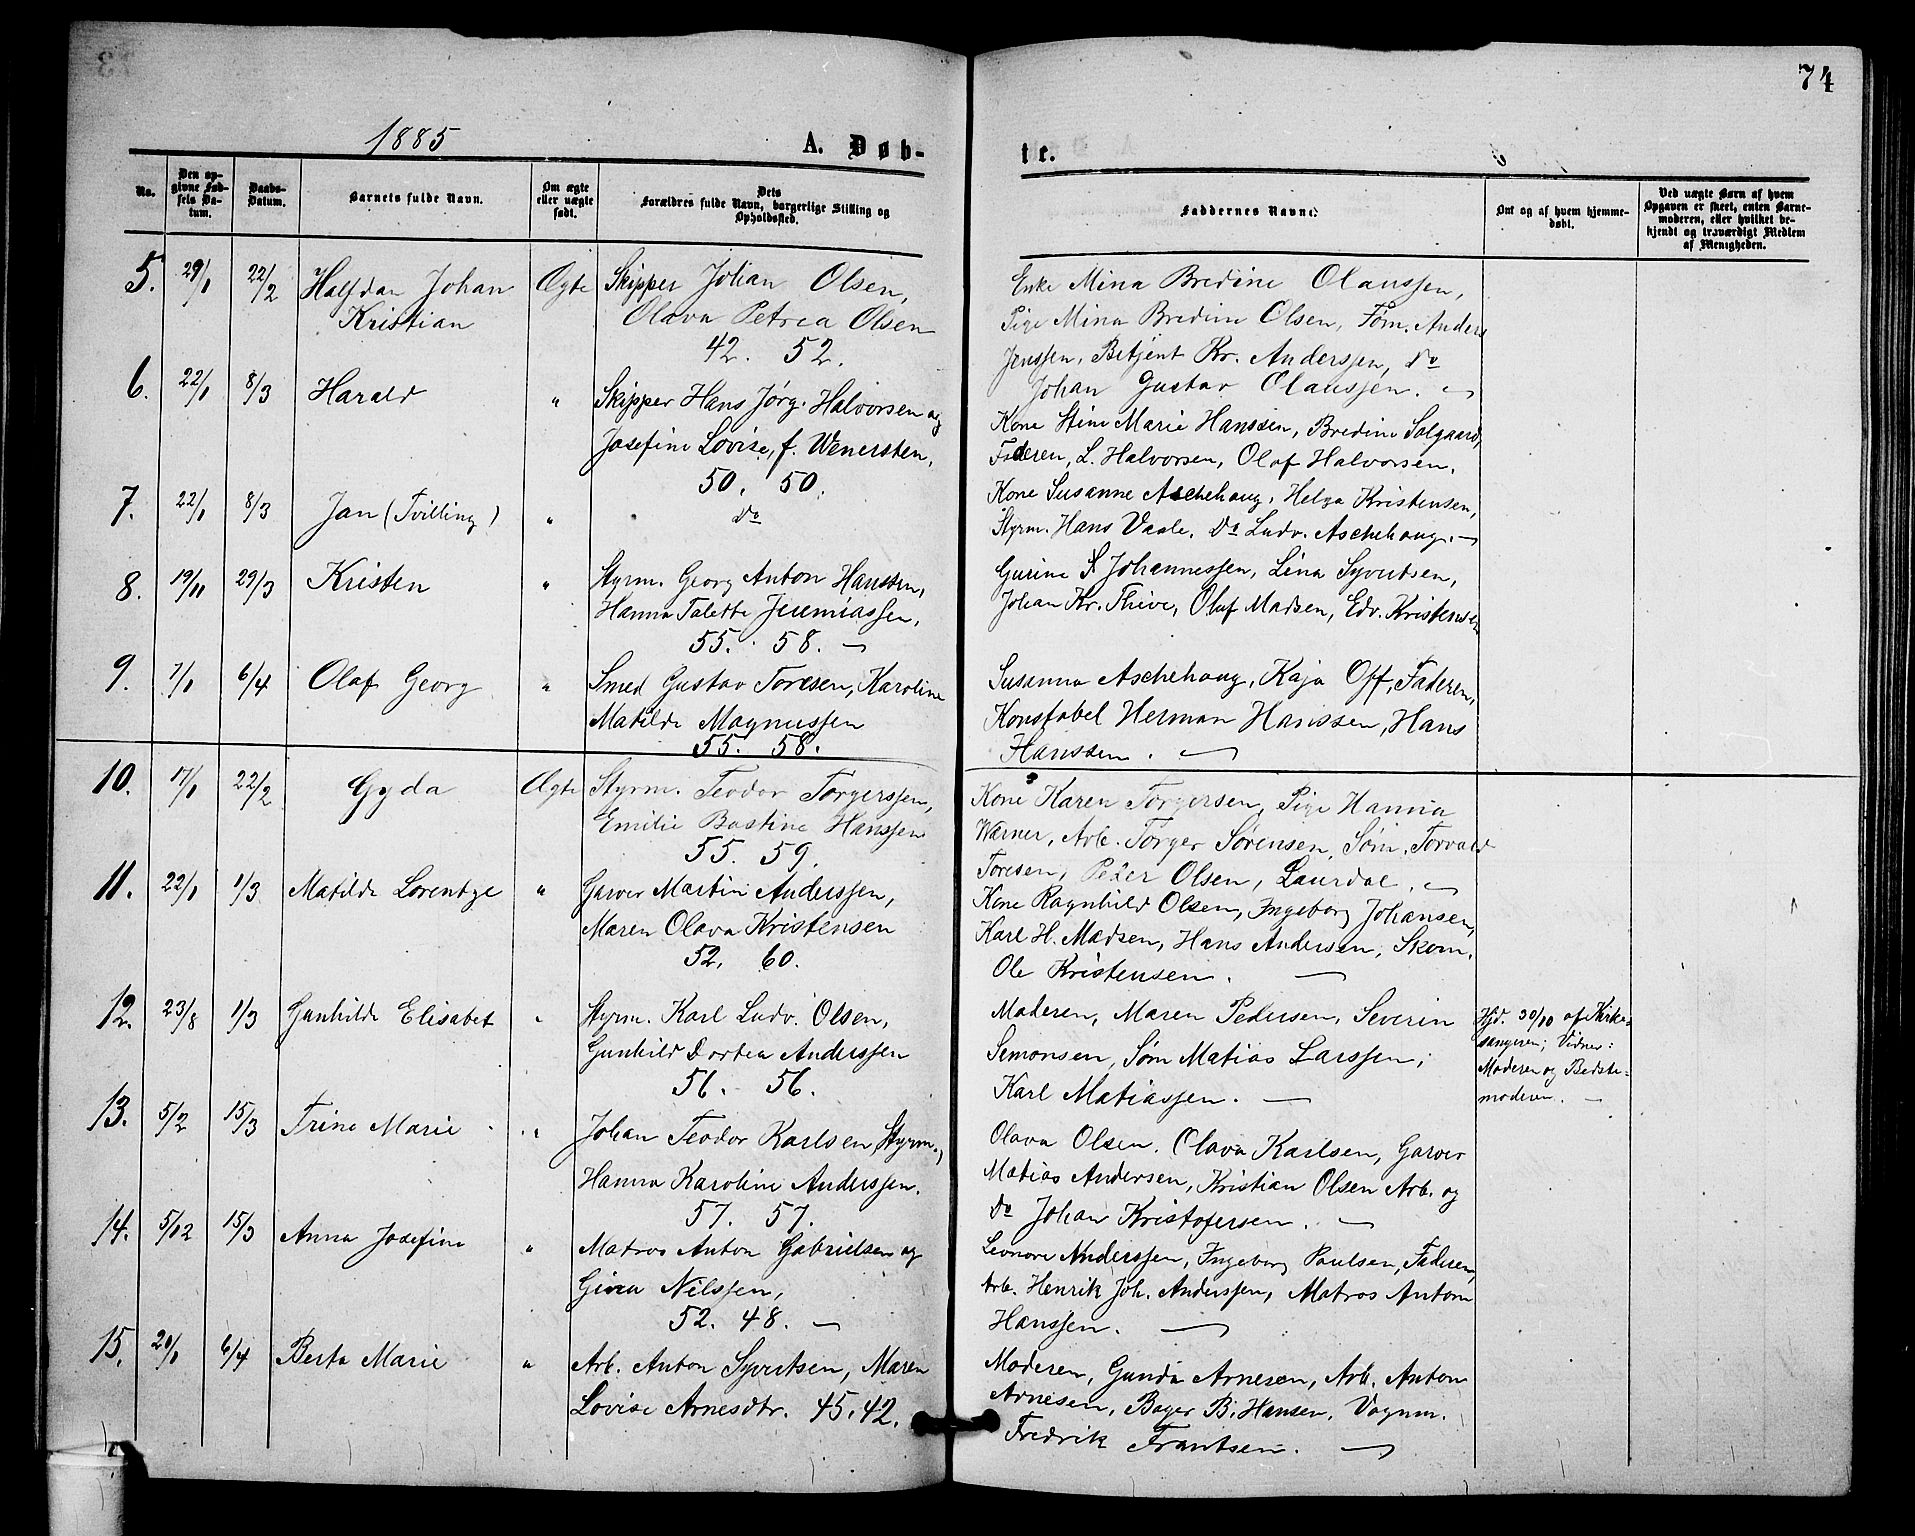 74
1885
A. Døb-
te.
No.
Den op-
givne Fød-
sels Da-
tum.
Daabs-
Datum.
Barnets fulde Navn.
Om ægte
eller uægte
født.
Dets
Forældres fulde Navn, borgerlige Stilling og
Opholdssted.
Faddernes Navne.
Om og af hvem hjemme-
døbt.
Ved uægte Børn af hvem
Opgaven er skeet, enten Barne-
moderen, eller hvilket be-
kjendt og troværdigt Medlem
af Menigheden.
5. 29/1 22/2 Halfdan Johan Ægte Skipper Johan Olsen,
Kristian Olava Petrea Olsen
42. 52.
Enke Mina Bredine Olaussen,
Pige Mina Bredine Olsen, Tøm. Anders
Jenssen, Betjent Kr. Anderssen, Do
Johan Gustav Olaussen. —
6. 22/1 8/3 Harald " Skipper Hans Jørg. Halvorsen og
Josefine Lovise, f. Wenersten,
50. 50.
Kone Stine Marie Hanssen, Bredine Solgaard,
Faderen, L. Halvorsen, Olaf Halvorsen.
7. 22/1 8/3 Jan (Tvilling) " Do
Kone Susanne Aschehoug, Helga Kristensen,
Styrm. Hans Vaale, Do Ludv. Aschehoug. —
8. 19/11 29/3 Kristen " Styrm. Georg Anton Hanssen,
Hanna Talette Jeremiassen,
55. 58. —
Gurine S. Johannessen, Lina Syvertsen,
Johan Kr. Thive, Oluf Madsen, Edv. Kristensen
9. 7/1 6/4 Olaf Georg " Smed Gustav Toresen, Karoline
Matilde Magnussen
55. 58.
Susanna Aschehoug, Kaja Off, Faderen,
Konstabel Herman Hanssen, Hans
Hanssen. —
10. 17/1 22/2 Gyda Ægte Styrm. Teodor Torgerssen,
Emilie Bastine Hanssen
55. 59.
Kone Karen Torgersen, Pige Hanna
Warner, Arb. Torger Sørensen, Søm. Torvald
Toresen, Peter Olsen, Laurdal. —
11. 22/1 1/3 Matilde Lorentze " Garver Martin Anderssen,
Maren Olava Kristensen
52. 60.
Kone Ragnhild Olsen, Ingeborg Johansen,
Karl H. Madsen, Hans Andersen, Skom.
Ole Kristensen. —
12. 23/8 1/3 Gunhilde Elisabet " Styrm. Karl Ludv. Olsen,
Gunhild Dortea Anderssen
56. 56.
Moderen, Maren Pedersen, Severin
Simonsen, Søm Matias Larssen,
Karl Matiassen. —
Hjd. 30/10 af Kirke-
sangeren; Vidner:
Moderen og Bedste-
moderen. —
13. 5/2 15/3 Trine Marie " Johan Teodor Karlsen Styrm.,
Hanna Karoline Anderssen.
57. 57.
Olava Olsen, Olava Karlsen, Garver
Matias Andersen, Kristian Olsen Arb. og
Do Johan Kristofersen. —
14. 5/12 15/3 Anna Josefine " Matros Anton Gabrielsen og
Gina Nilssen,
52. 48. —
Leonore Anderssen, Ingeborg Paulsen, Faderen,
Arb. Henrik Joh. Anderssen, Matros Anton
Hanssen. —
15. 20/1 6/4 Berta Marie " Arb. Anton Syvertsen, Maren
Lovise Arnesdtr. 45. 42.
Moderen, Gunda Arnesen, Arb. Anton
Arnesen, Bager B. Hansen, Vognm.
Fredrik Frantsen. —